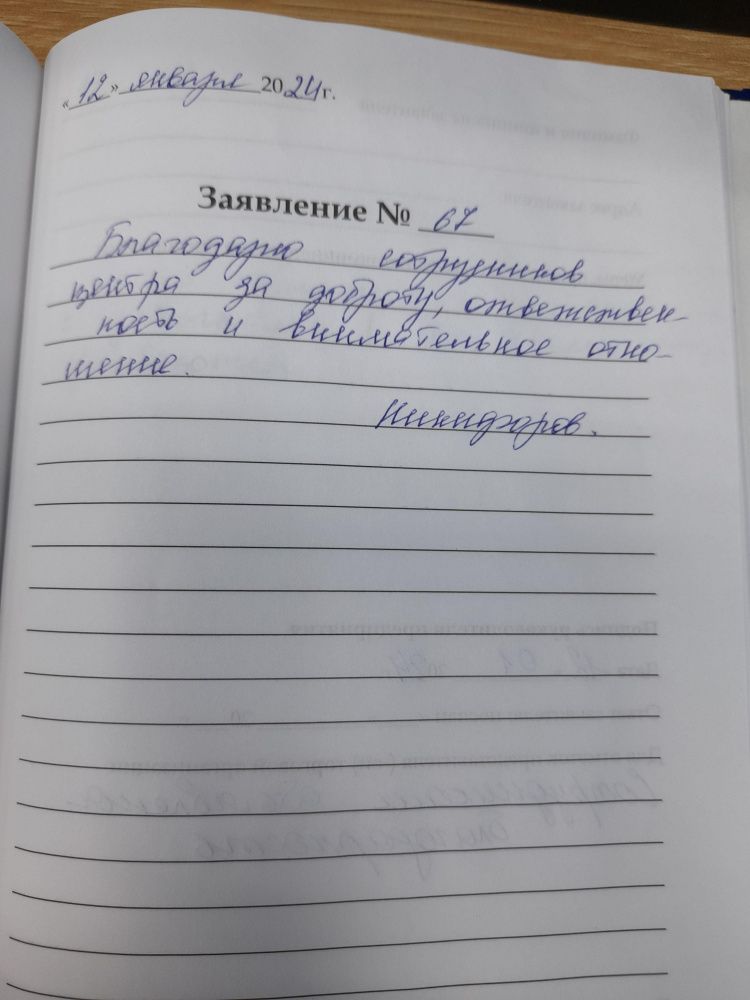 «12» января 2024г.
Заявление № 67
Благодарю сотрудников
центра за доброту, ответствен-
ность и внимательное отно-
шение.
Никифоров.